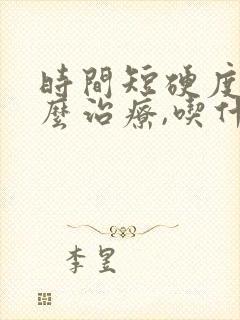 時間短硬度
麼治療,喫什
李昱